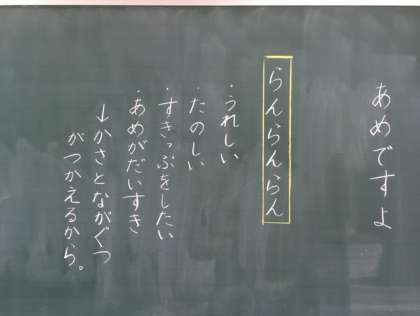 あめですよ
らんらんらん
・うれしい
・たのしい
・すきっぷをしたい
・あめがだいすき
→かさとながぐつ
がつかえるから。